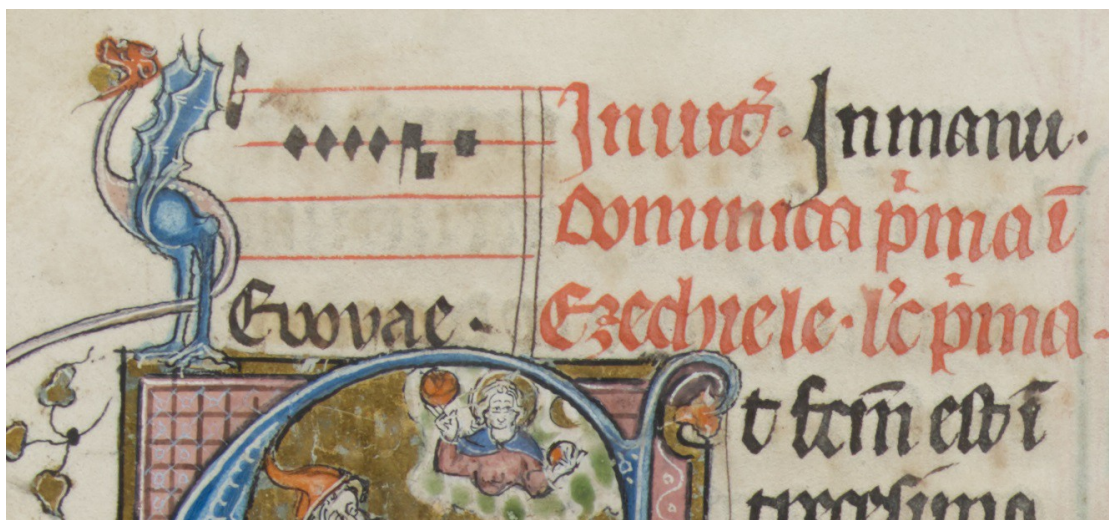 Euouae.
Inuit̾. In manu.
Dominica pͥma ī
Ezechiele. lc̾ pͥma.
t fcm̄ est ī
tricesimo